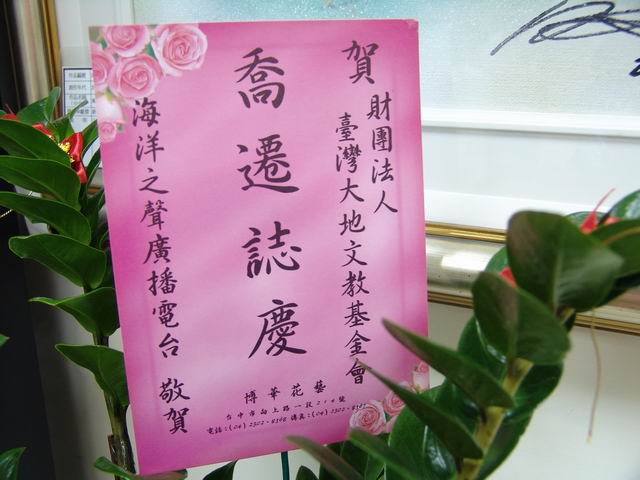 賀
財團法人
臺灣大地文教基金會
喬遷誌慶
海洋之聲廣播電台 敬賀
博華花藝
台中市向上路一段214號
電話:(04)2302-8398 傳真:(04)2302-8397